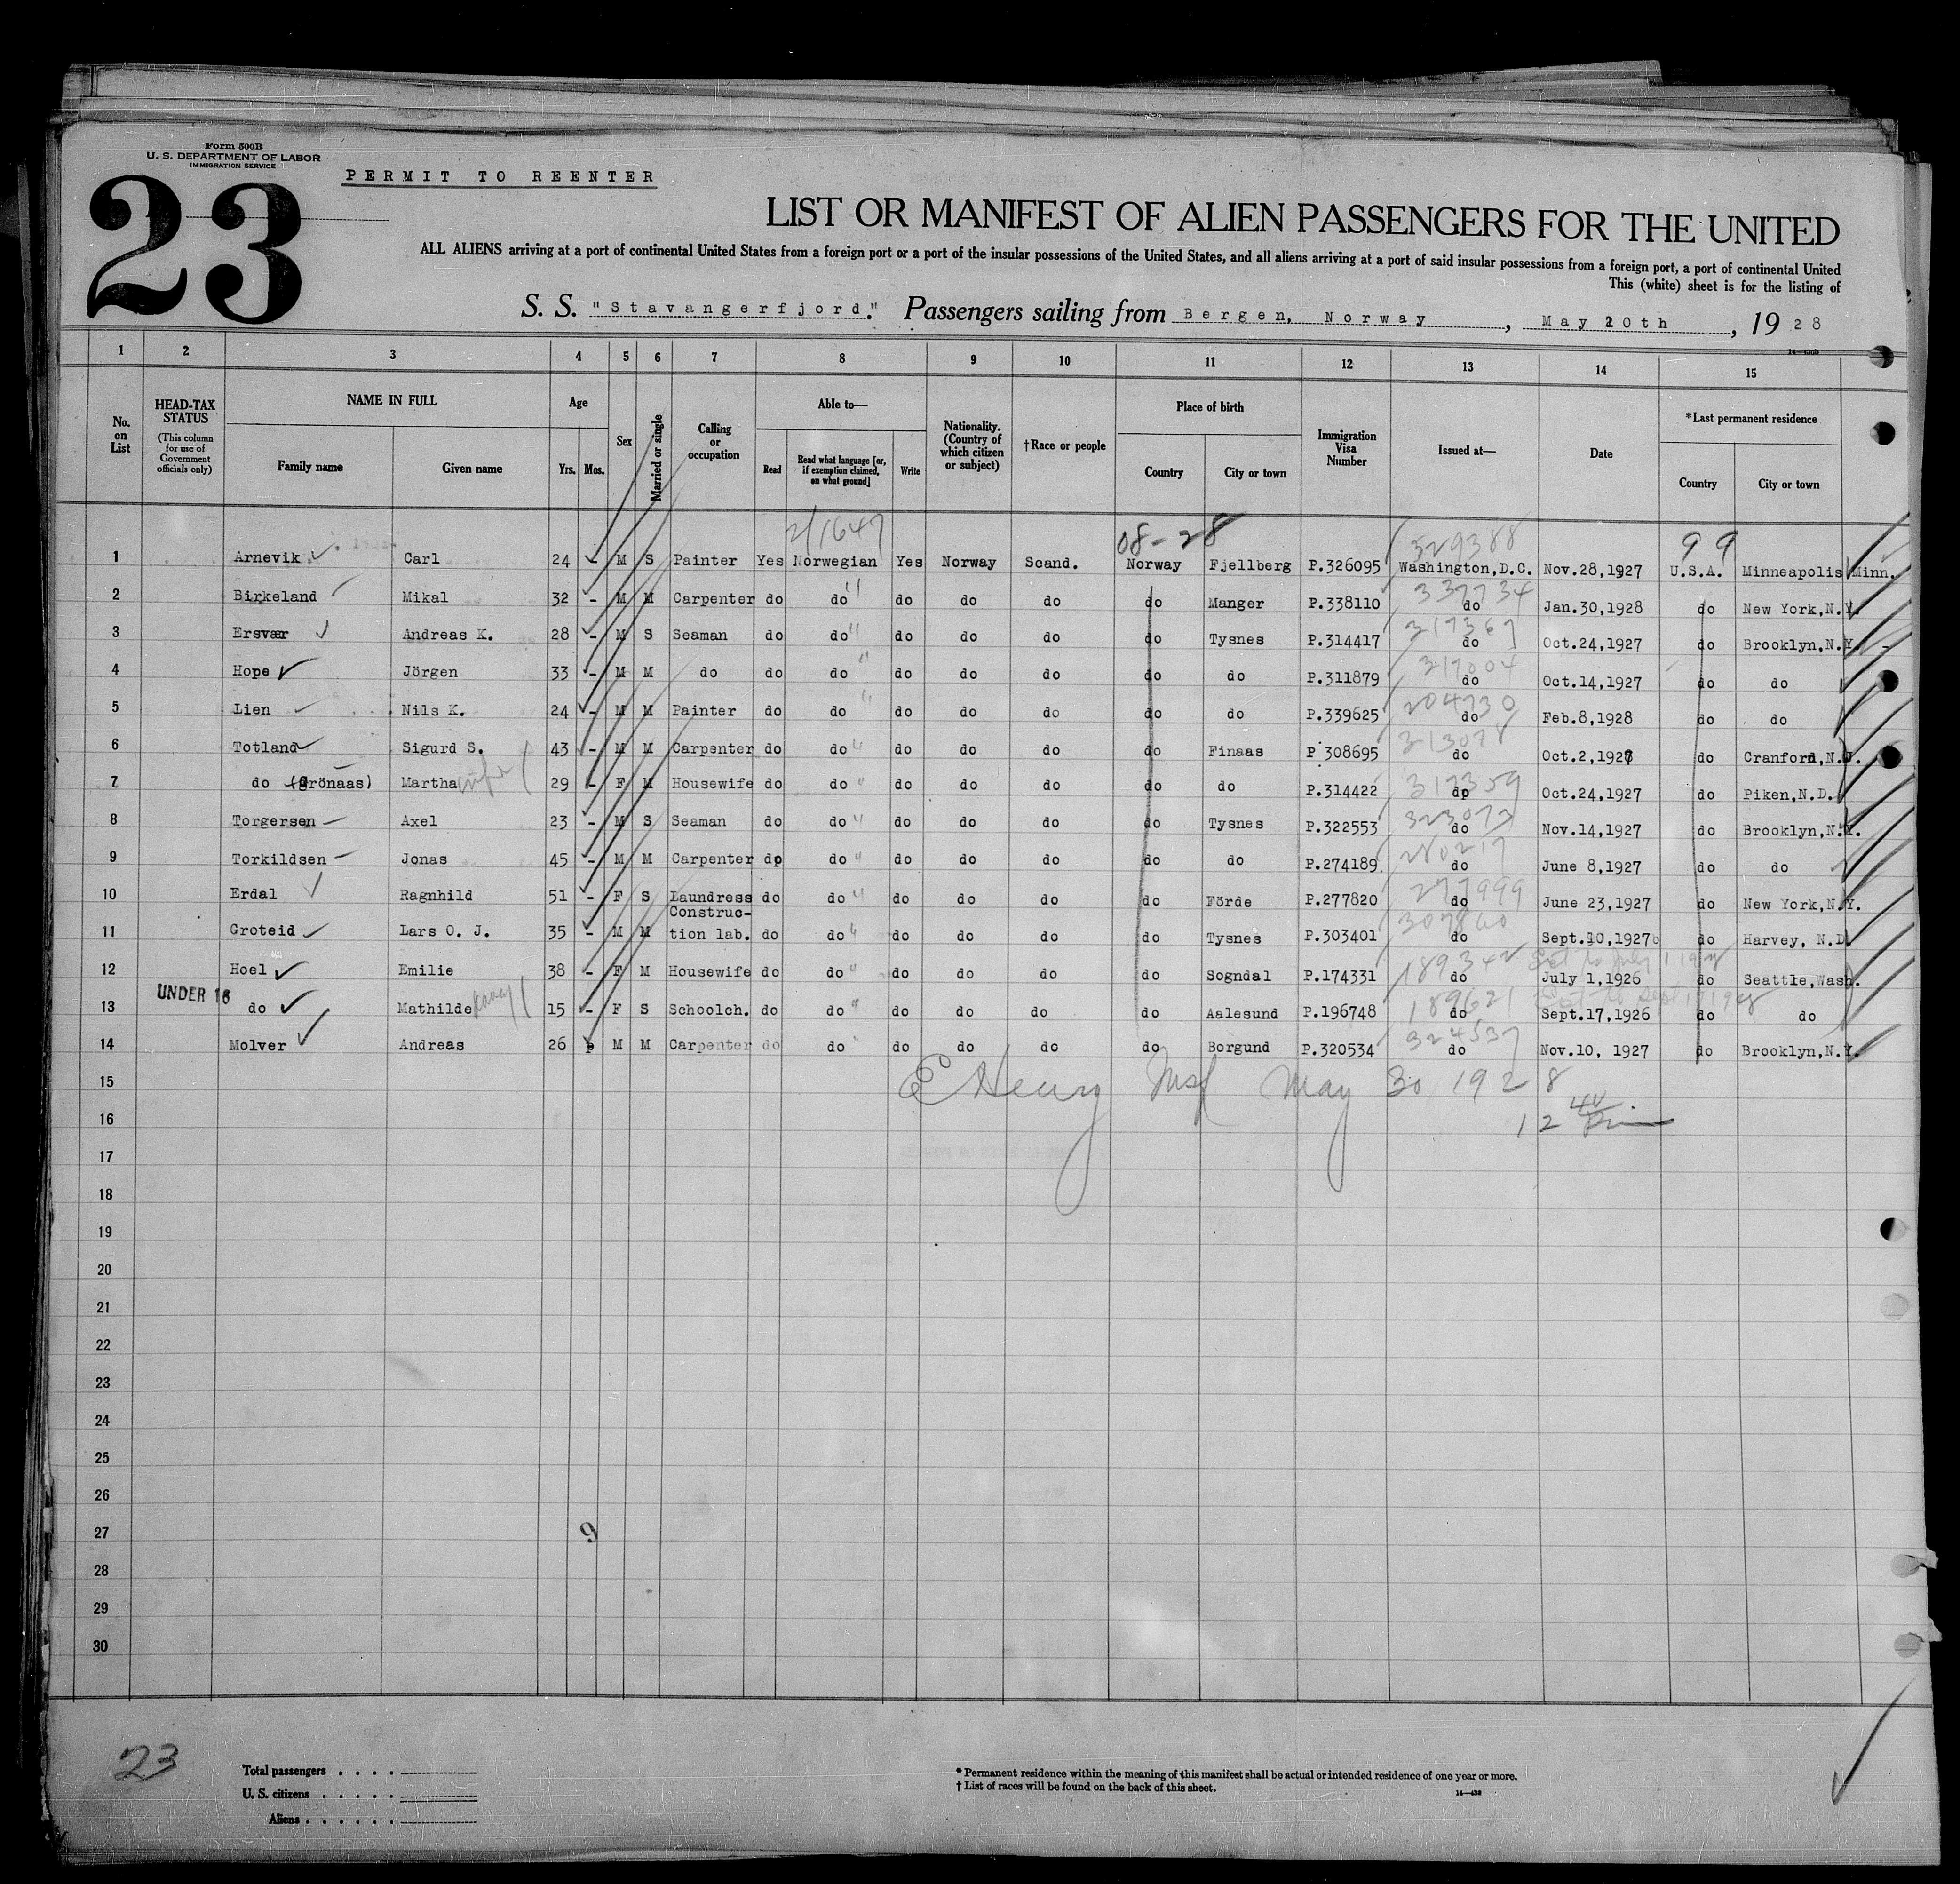 Form 500B
U. S. DEPARTMENT OF LABOR
IMMIGRATION SERVICE
23
PERMIT TO REENTER
LIST OR MANIFEST OF ALIEN PASSENGERS FOR THE UNITED
ALL ALIENS arriving at a port of continental United States from a foreign port or a port of the insular possessions of the United States, and all aliens arriving at a port of said insular possessions from a foreign port, a port of continental United
This (white) sheet is for the listing of
S. S. "Stavangerfjord." Passengers sailing from Bergen, Norway, May 20th, 1928
1 2 3 4 5 6 7 8 9 10 11 12 13 14 15
No. on List
HEAD-TAX STATUS (This column for use of Government officials only)
NAME IN FULL Family name Given name
Age Yrs. Mos.
Sex
Married or single
Calling or occupation
Able to— Read Read what language [or, if exemption claimed, on what ground] Write
Nationality. (Country of which citizen or subject)
†Race or people
Place of birth Country City or town
Immigration Visa Number
Issued at—
Date
*Last permanent residence Country City or town
2/1647 08-28 329388 99
1 Arnevik Carl 24 - M S Painter Yes Norwegian Yes Norway Scand. Norway Fjellberg P.326095 Washington,D.C. Nov.28,1927 U.S.A. Minneapolis Minn.
337734
2 Birkeland Mikal 32 - M M Carpenter do do " do do do do Manger P.338110 do Jan.30,1928 do New York,N.Y.
317367
3 Ersvær Andreas K. 28 - M S Seaman do do " do do do do Tysnes P.314417 do Oct.24,1927 do Brooklyn,N.Y.
317004
4 Hope Jörgen 33 - M M do do do " do do do do do P.311879 do Oct.14,1927 do do
204730
5 Lien Nils K. 24 - M M Painter do do " do do do do do P.339625 do Feb.8,1928 do do
6 Totland Sigurd S. 43 - M M Carpenter do do " do do do do Finaas P.308695 do Oct.2,1927 do Cranford,N.J.
317359
7 do (Grönaas) Martha wife 29 - F M Housewife do do " do do do do do P.314422 do Oct.24,1927 do Piken,N.D.
323073
8 Torgersen Axel 23 - M S Seaman do do " do do do do Tysnes P.322553 do Nov.14,1927 do Brooklyn,N.Y.
280217
9 Torkildsen Jonas 45 - M M Carpenter do do " do do do do do P.274189 do June 8,1927 do do
277999
10 Erdal Ragnhild 51 - F S Laundress do do " do do do do Förde P.277820 do June 23,1927 do New York,N.Y.
307860
11 Groteid Lars O. J. 35 - M M Construc-
tion lab. do do " do do do do Tysnes P.303401 do Sept.10,1927 do Harvey, N.D.
189342 Ext to July 1 1928
12 Hoel Emilie 38 - F M Housewife do do " do do do do Sogndal P.174331 do July 1,1926 do Seattle,Wash.
UNDER 16
189621
13 do Mathilde 15 - F S Schoolch. do do " do do do do Aalesund P.196748 do Sept.17,1926 do do
324537
14 Molver Andreas 26 M M Carpenter do do " do do do do Borgund P.320534 do Nov.10, 1927 do Brooklyn,N.Y.
15 E Henry May 30 1928
16 12 40
17
18
19
20
21
22
23
24
25
26
27 9
28
29
30
23
Total passengers . . . .
U. S. citizens . . . . .
Aliens . . . . . .
* Permanent residence within the meaning of this manifest shall be actual or intended residence of one year or more.
† List of races will be found on the back of this sheet.
14—438